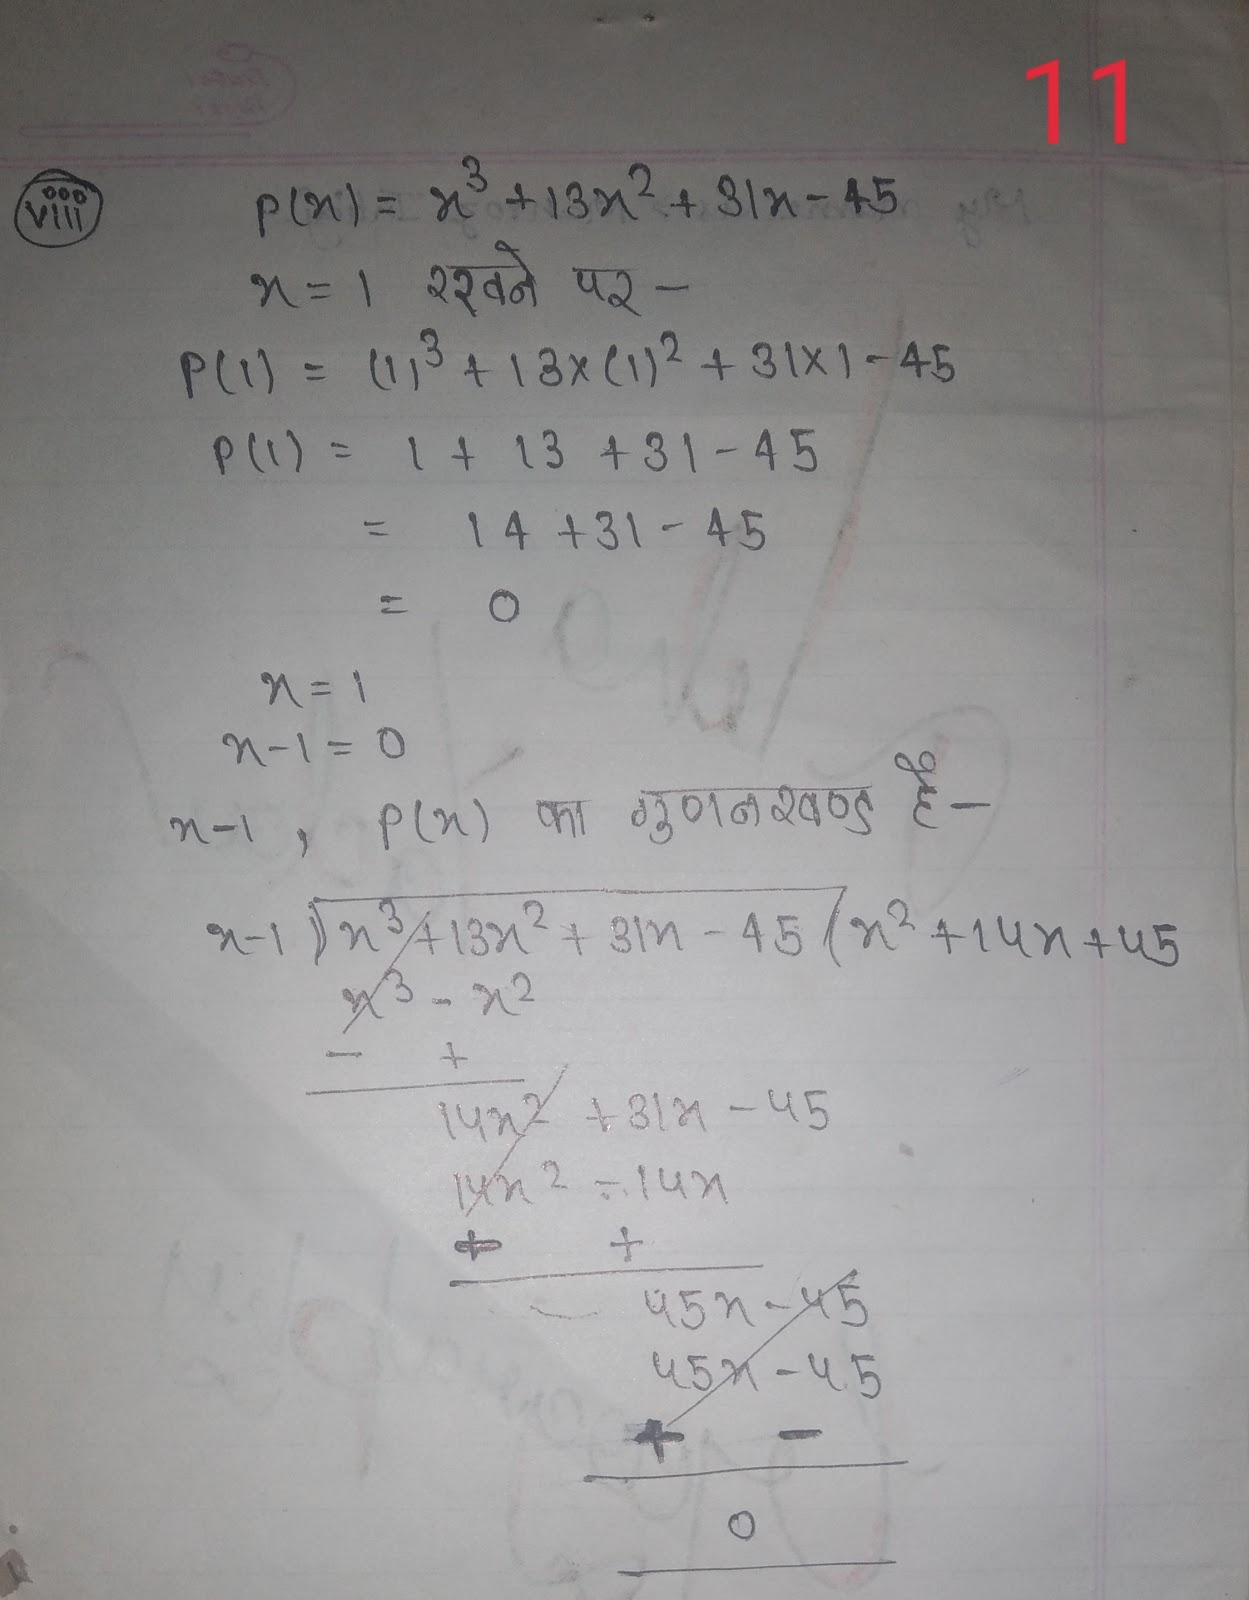 11
viii
P(x) = x³ + 13x² + 31x - 45
x = 1 रखने पर -
P(1) = (1)³ + 13×(1)² + 31×1 - 45
P(1) = 1 + 13 + 31 - 45
= 14 + 31 - 45
= 0
x = 1
x - 1 = 0
x - 1 , P(x) का गुणनखण्ड है -
x-1 ) x³ + 13x² + 31x - 45 ( x² + 14x + 45
x³ - x²
- +
14x² + 31x - 45
14x² - 14x
+ +
45x - 45
45x - 45
+ -
0